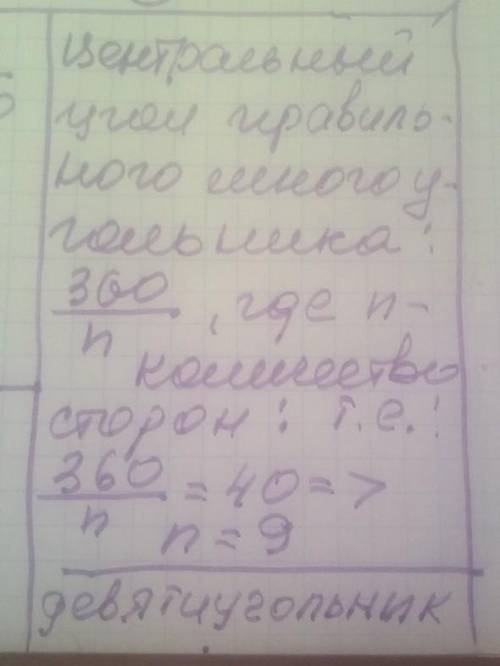 Центральный
угол правиль-
ного многоу-
гольника:
360
n
, где n-
количество
сторон: т.е.:
360
n
= 40 =>
n = 9
девятиугольник